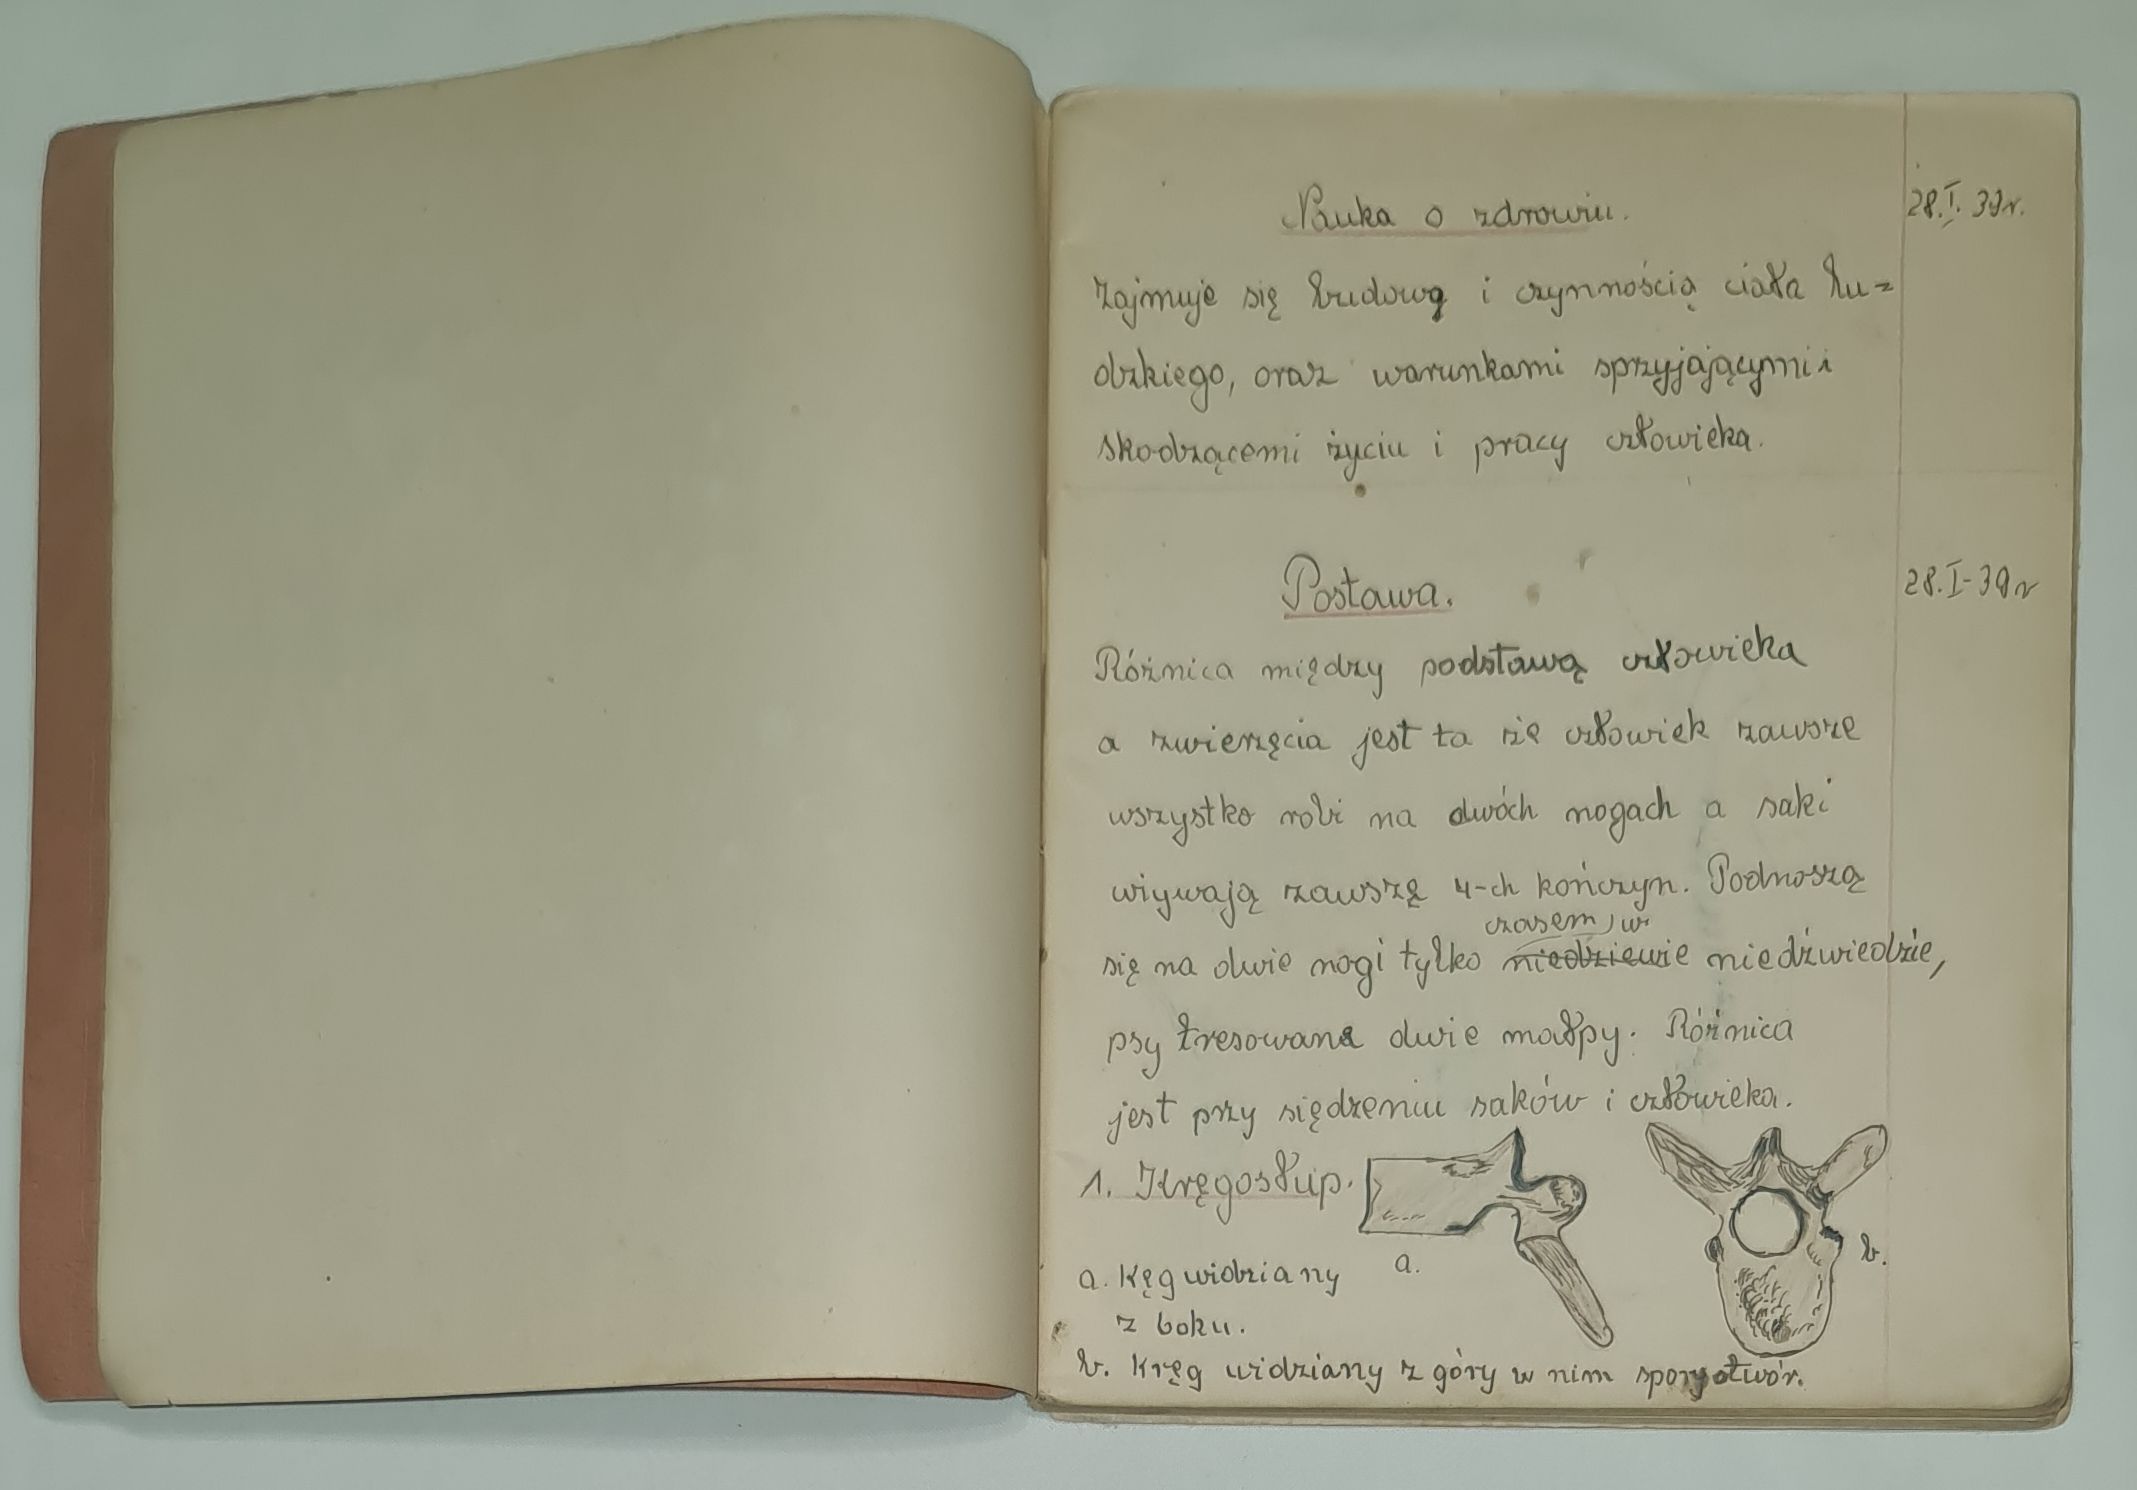 Nauka o zdrowiu.
28.I.39r.
Zajmuje się budową i czynnością ciała lu=
dzkiego, oraz warunkami sprzyjającymi i
skodzącemi życiu i pracy człowieka.
Postawa.
28.I-39r
Różnica między podstawą człowieka
a zwierzęcia jest ta że człowiek zawsze
wszystko robi na dwóch nogach a saki
wiywają zawszę 4-ch kończyn. Podnoszą
czasem, w
się na dwie nogi tylko niedziewie niedźwiedzie,
psy tresowane dwie małpy. Różnica
jest przy siędzeniu saków i człowieka.
1. Kręgosłup.
a. Kęg widziany
a.
b.
z boku.
b. Kręg widziany z góry w nim spory otwór.